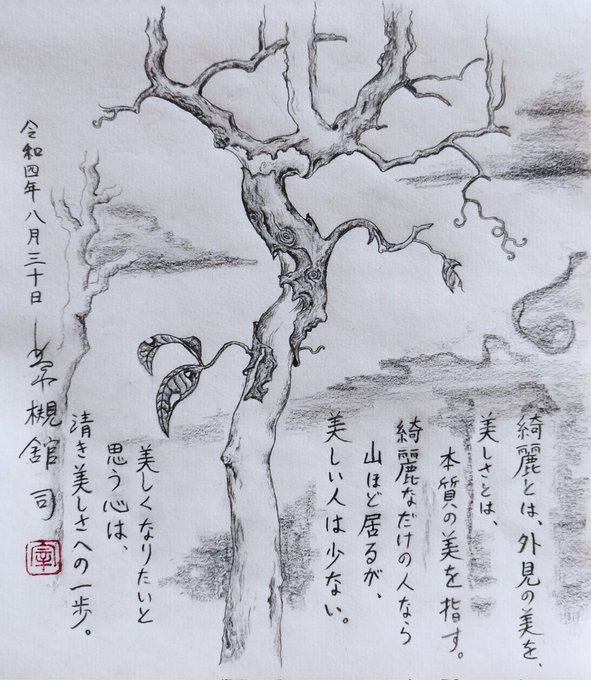 綺麗とは、外見の美を、
美しさとは、
本質の美を指す。
綺麗なだけの人なら
山ほど居るが、
美しい人は少ない。
美しくなりたいと
思う心は、
清き美しさへの一歩。
令和四年八月三十日
槻舘 司